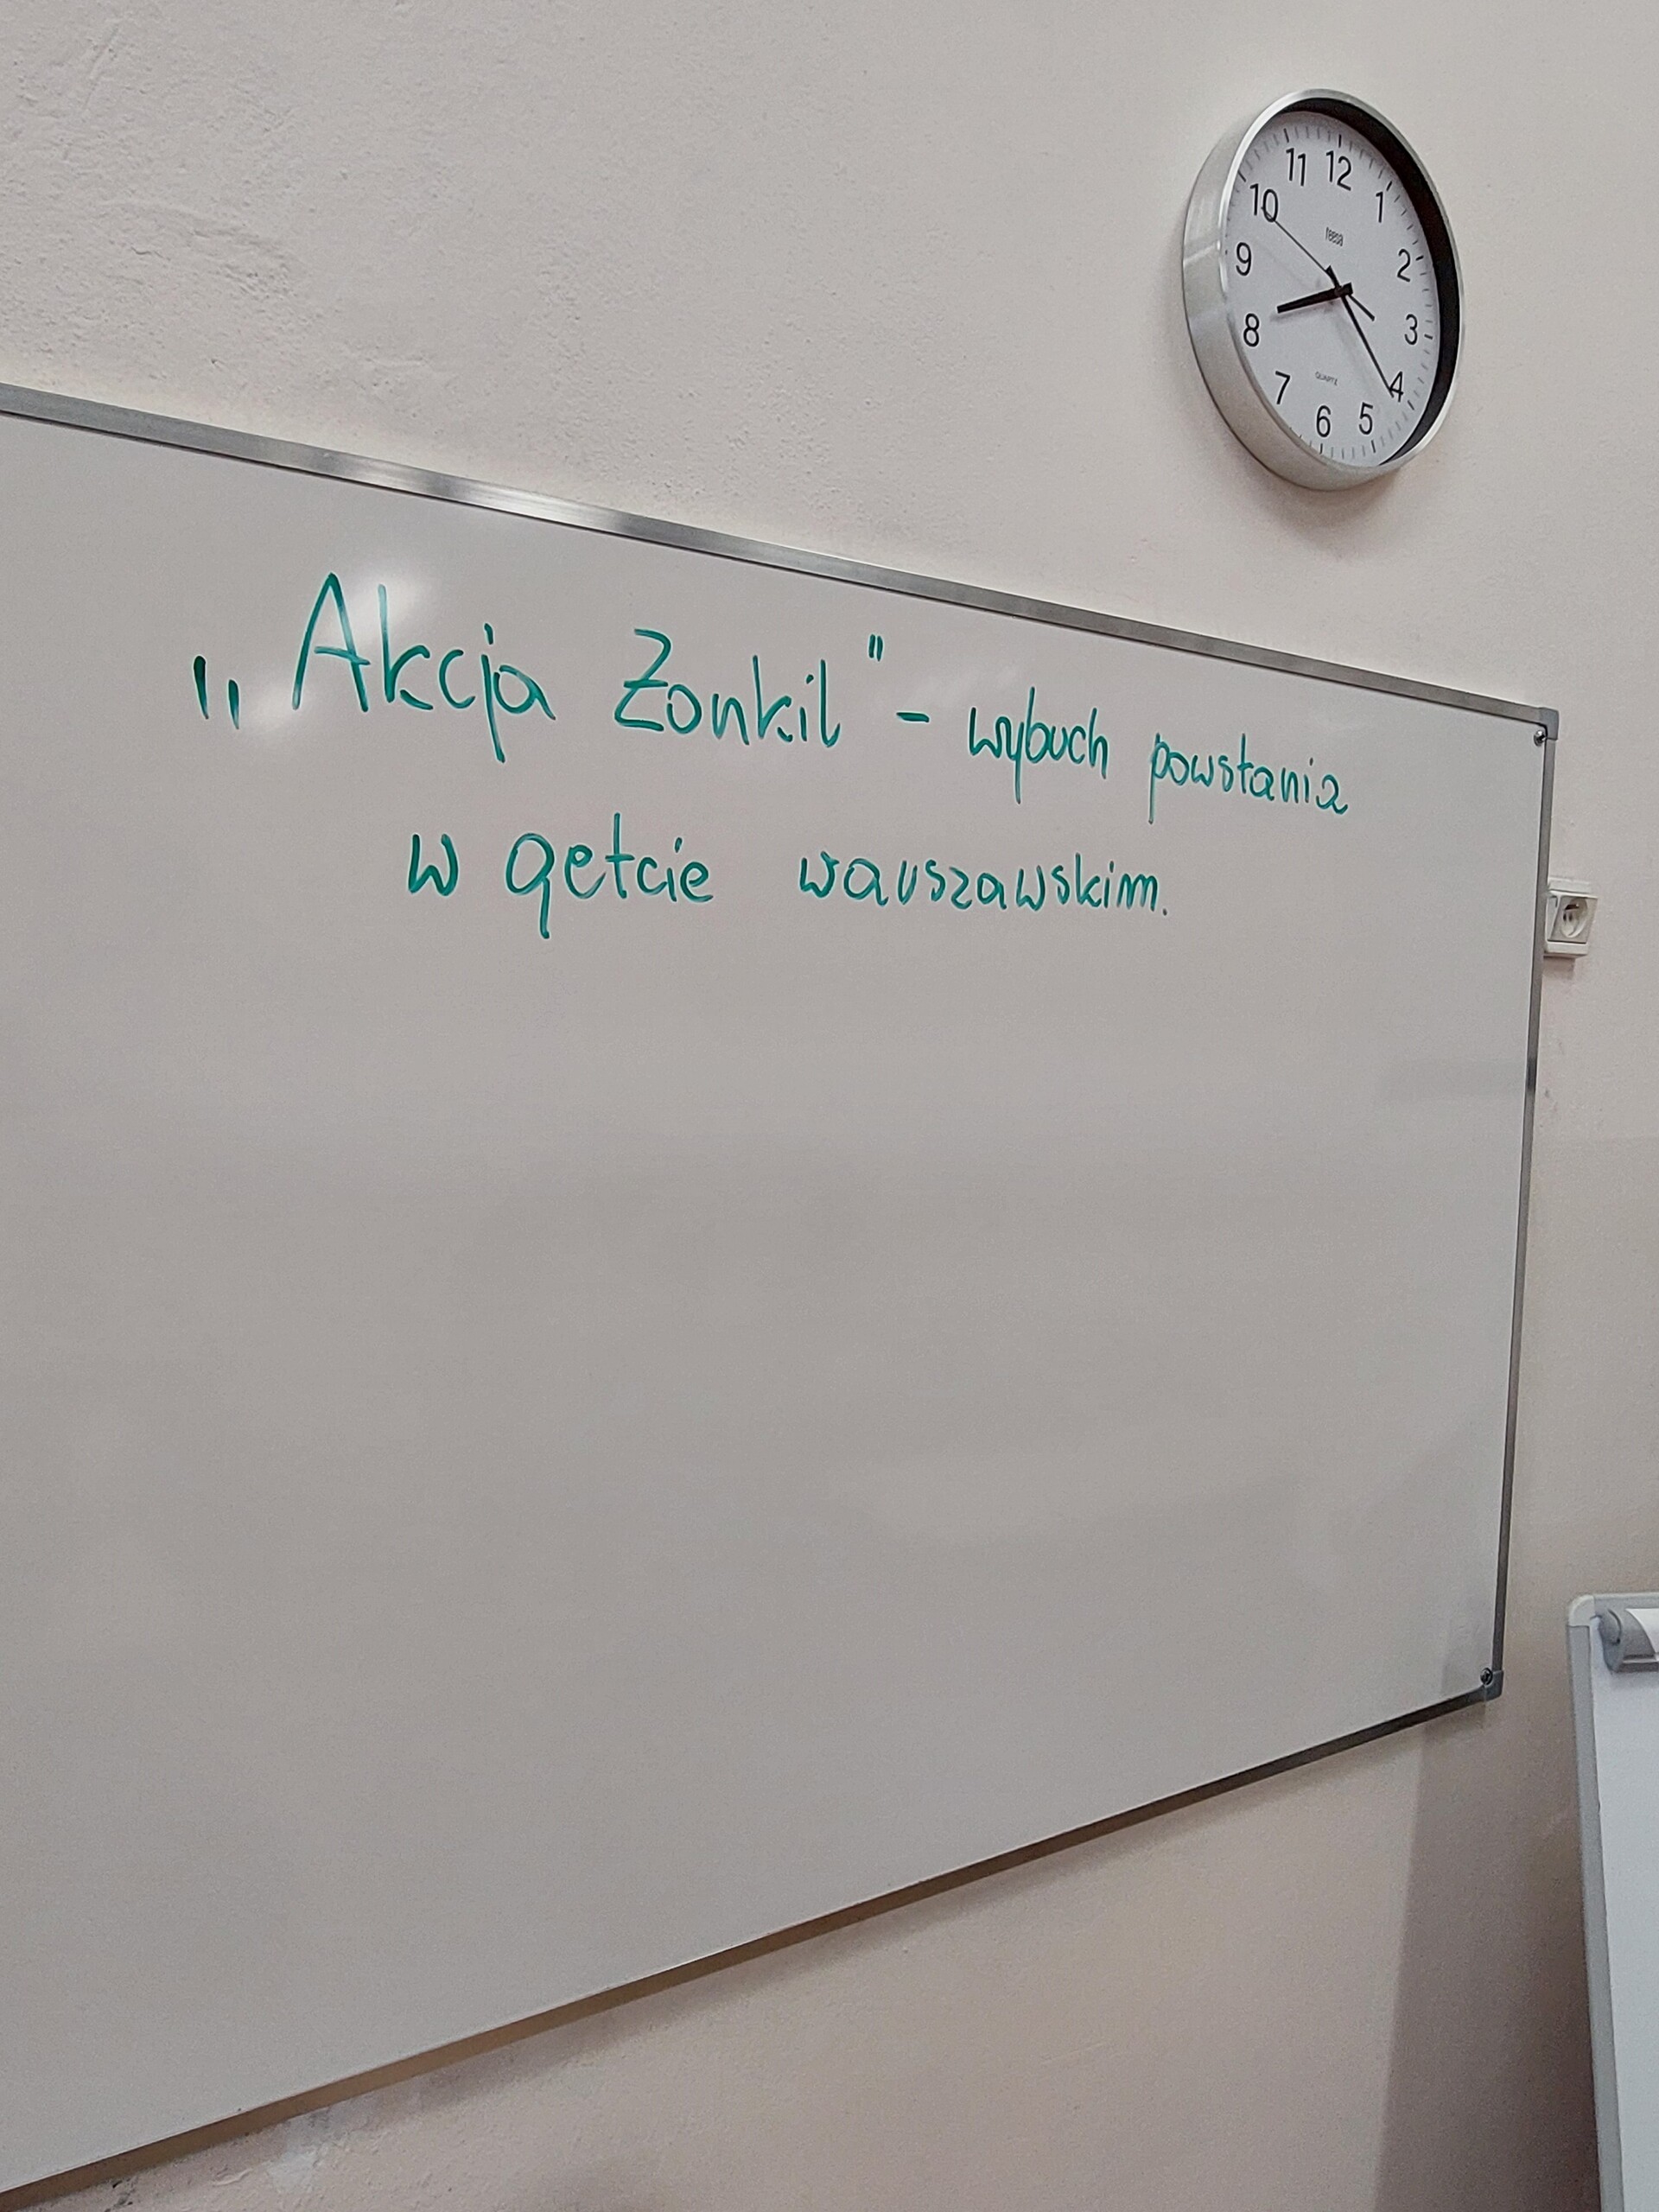 „Akcja Żonkil" - wybuch powstania
w getcie warszawskim.
11 12 1
10 2
9 3
8 4
7 6 5
QUARTZ